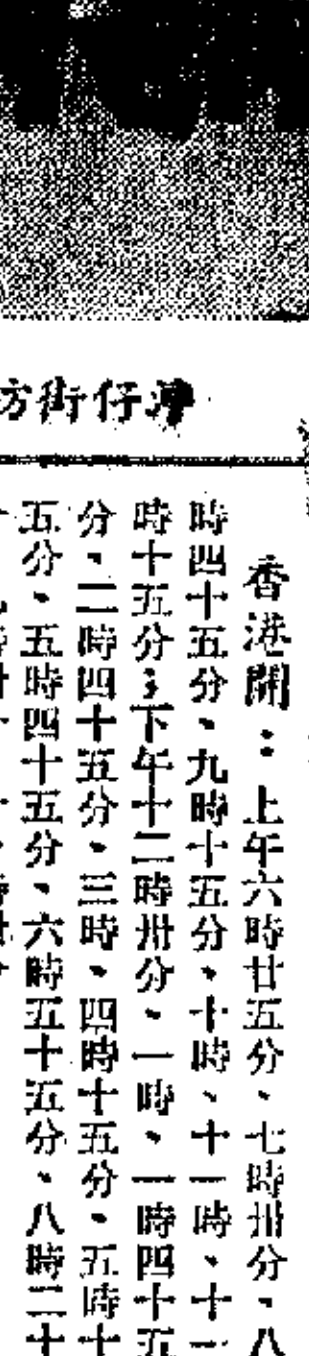 灣仔街方
香港開：上午六時廿五分、七時卅分、八
時四十五分、九時十五分、十時、十一時、十一
時十五分；下午十二時卅分、一時、一時四十五
分、二時四十五分、三時、四時十五分、五時十
五分、五時四十五分、六時五十五分、八時二十